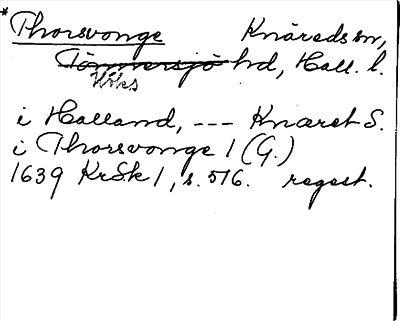 * Thorsvonge Knäreds sn,
Tönnersjö hd, Hall. l.
Höks
i Halland, --- Knæret S.
i Thorsvonge 1 (G.)
1639 KrSk 1, s. 516. regest.